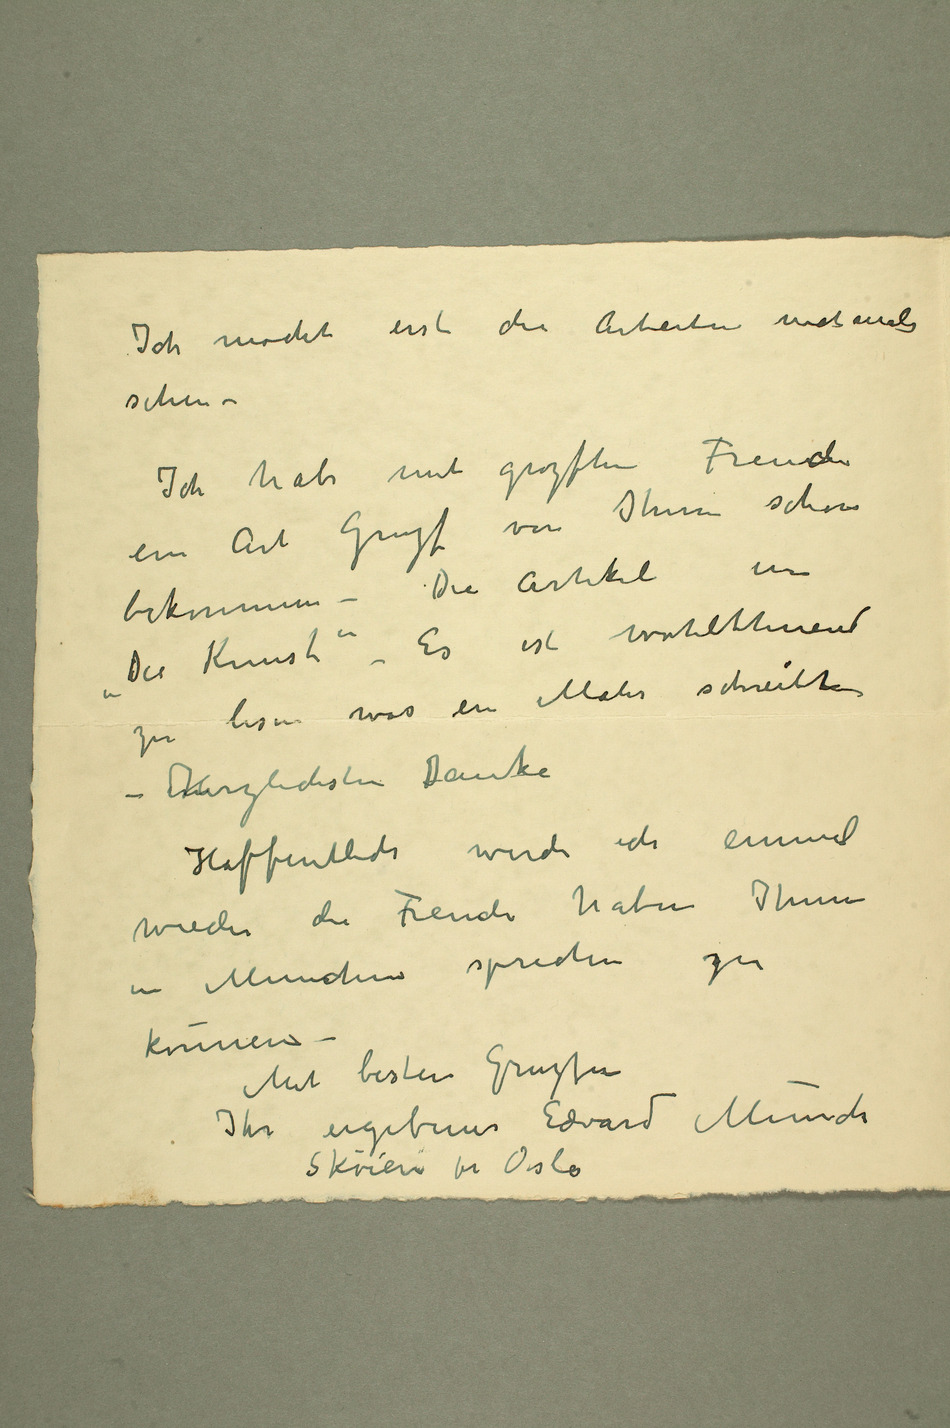 Ich möcht erst die Arbeiten nochmals
sehen –
Ich habe mit grozften Freude
ein Art Gruzf von Ihnen schon
bekommen – Die Artikel in
„Die Kunst“ – Es ist wohlthuend
zu lesen was ein Maler schreibt
– Herzlichsten Danke
Haffentlich werde ich einmal
wieder die Freude haben Ihnen
in München sprechen zu
können –
Mit besten Gruzfen
Ihr ergebener Edvard Munch
Sköien pr Oslo